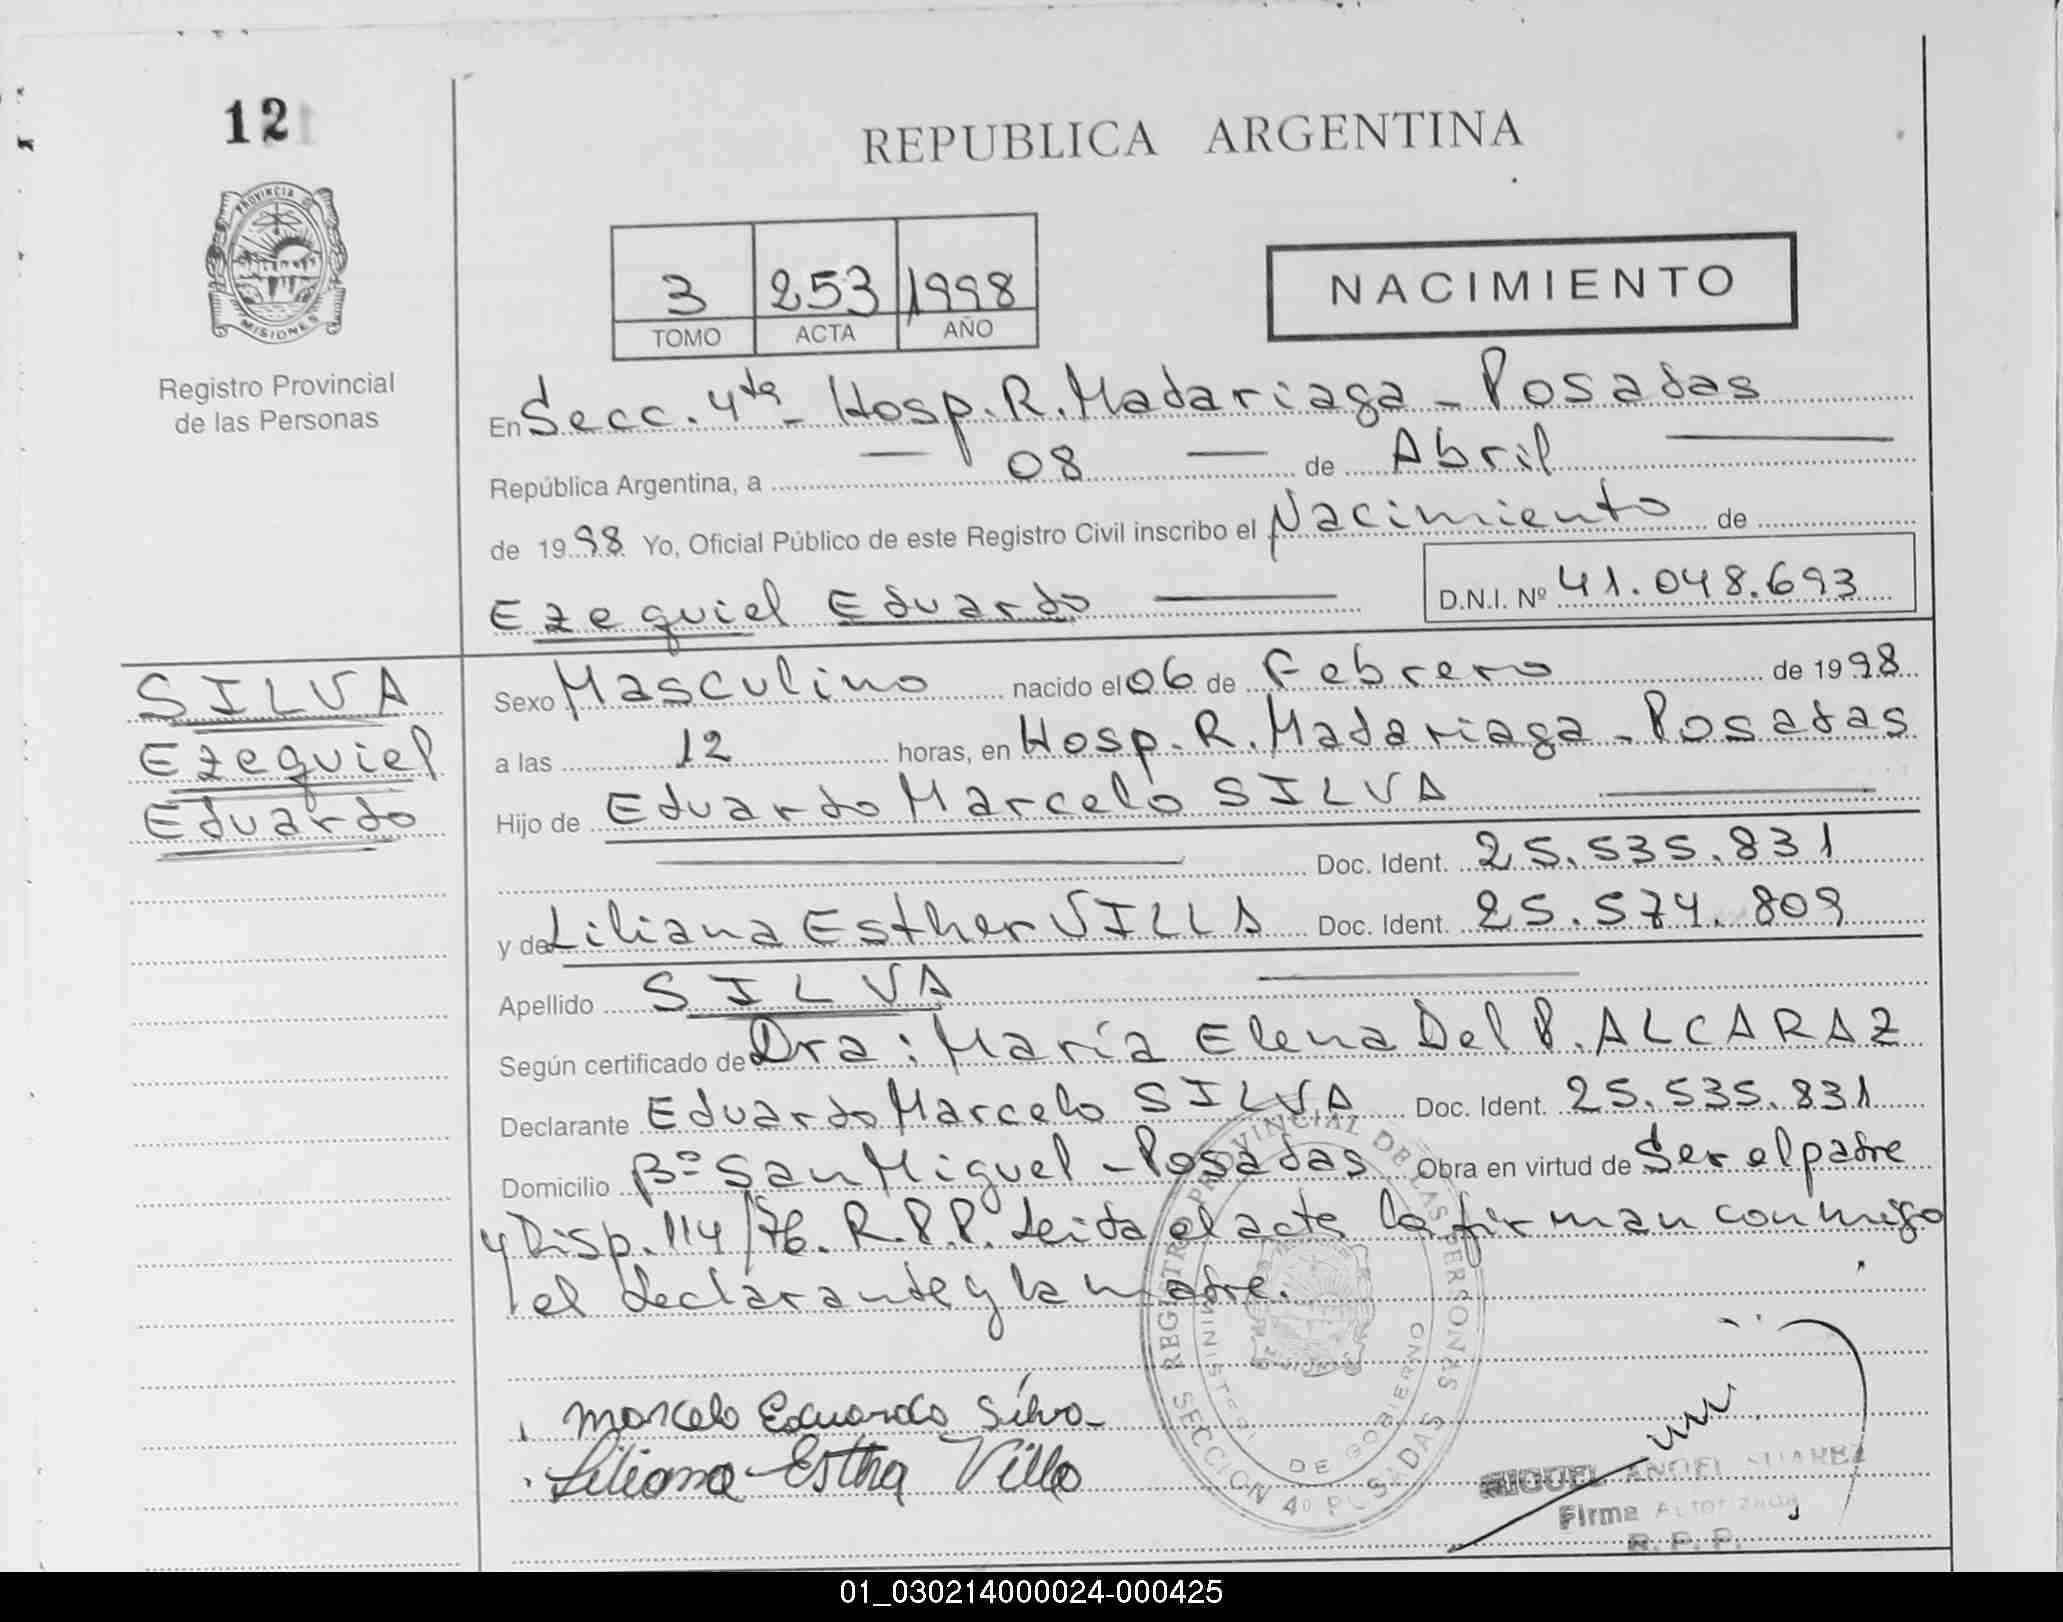 121
REPUBLICA ARGENTINA
PROVINCIA DE
MISIONES
Registro Provincial
de las Personas
3 253 1998
TOMO ACTA AÑO
NACIMIENTO
En Secc. 4ta - Hosp. R. Madariaga - Posadas
República Argentina, a — 08 — de Abril
de 1998 Yo, Oficial Público de este Registro Civil inscribo el Nacimiento de
Ezequiel Eduardo D.N.I. Nº 41.048.693
SILVA
Ezequiel
Eduardo
Sexo Masculino nacido el 06 de Febrero de 1998
a las 12 horas, en Hosp. R. Madariaga - Posadas
Hijo de Eduardo Marcelo SILVA
Doc. Ident. 25.535.831
y de Liliana Esther VILLA Doc. Ident. 25.574.809
Apellido SILVA
Según certificado de Dra: María Elena Del P. ALCARAZ
Declarante Eduardo Marcelo SILVA Doc. Ident. 25.535.831
Domicilio Bº San Miguel - Posadas Obra en virtud de Ser el padre
y Disp. 114/76. R.P.P. Leida el acta la firman conmigo
el declarante y la madre.
REGISTRO PROVINCIAL DE LAS PERSONAS
MINISTERIO DE GOBIERNO
SECCION 4º POSADAS
Marcelo Eduardo Silva
Liliana Esther Villa
MIGUEL ANGEL SUAREZ
Firma Autorizada
R. P. P.
01_030214000024-000425